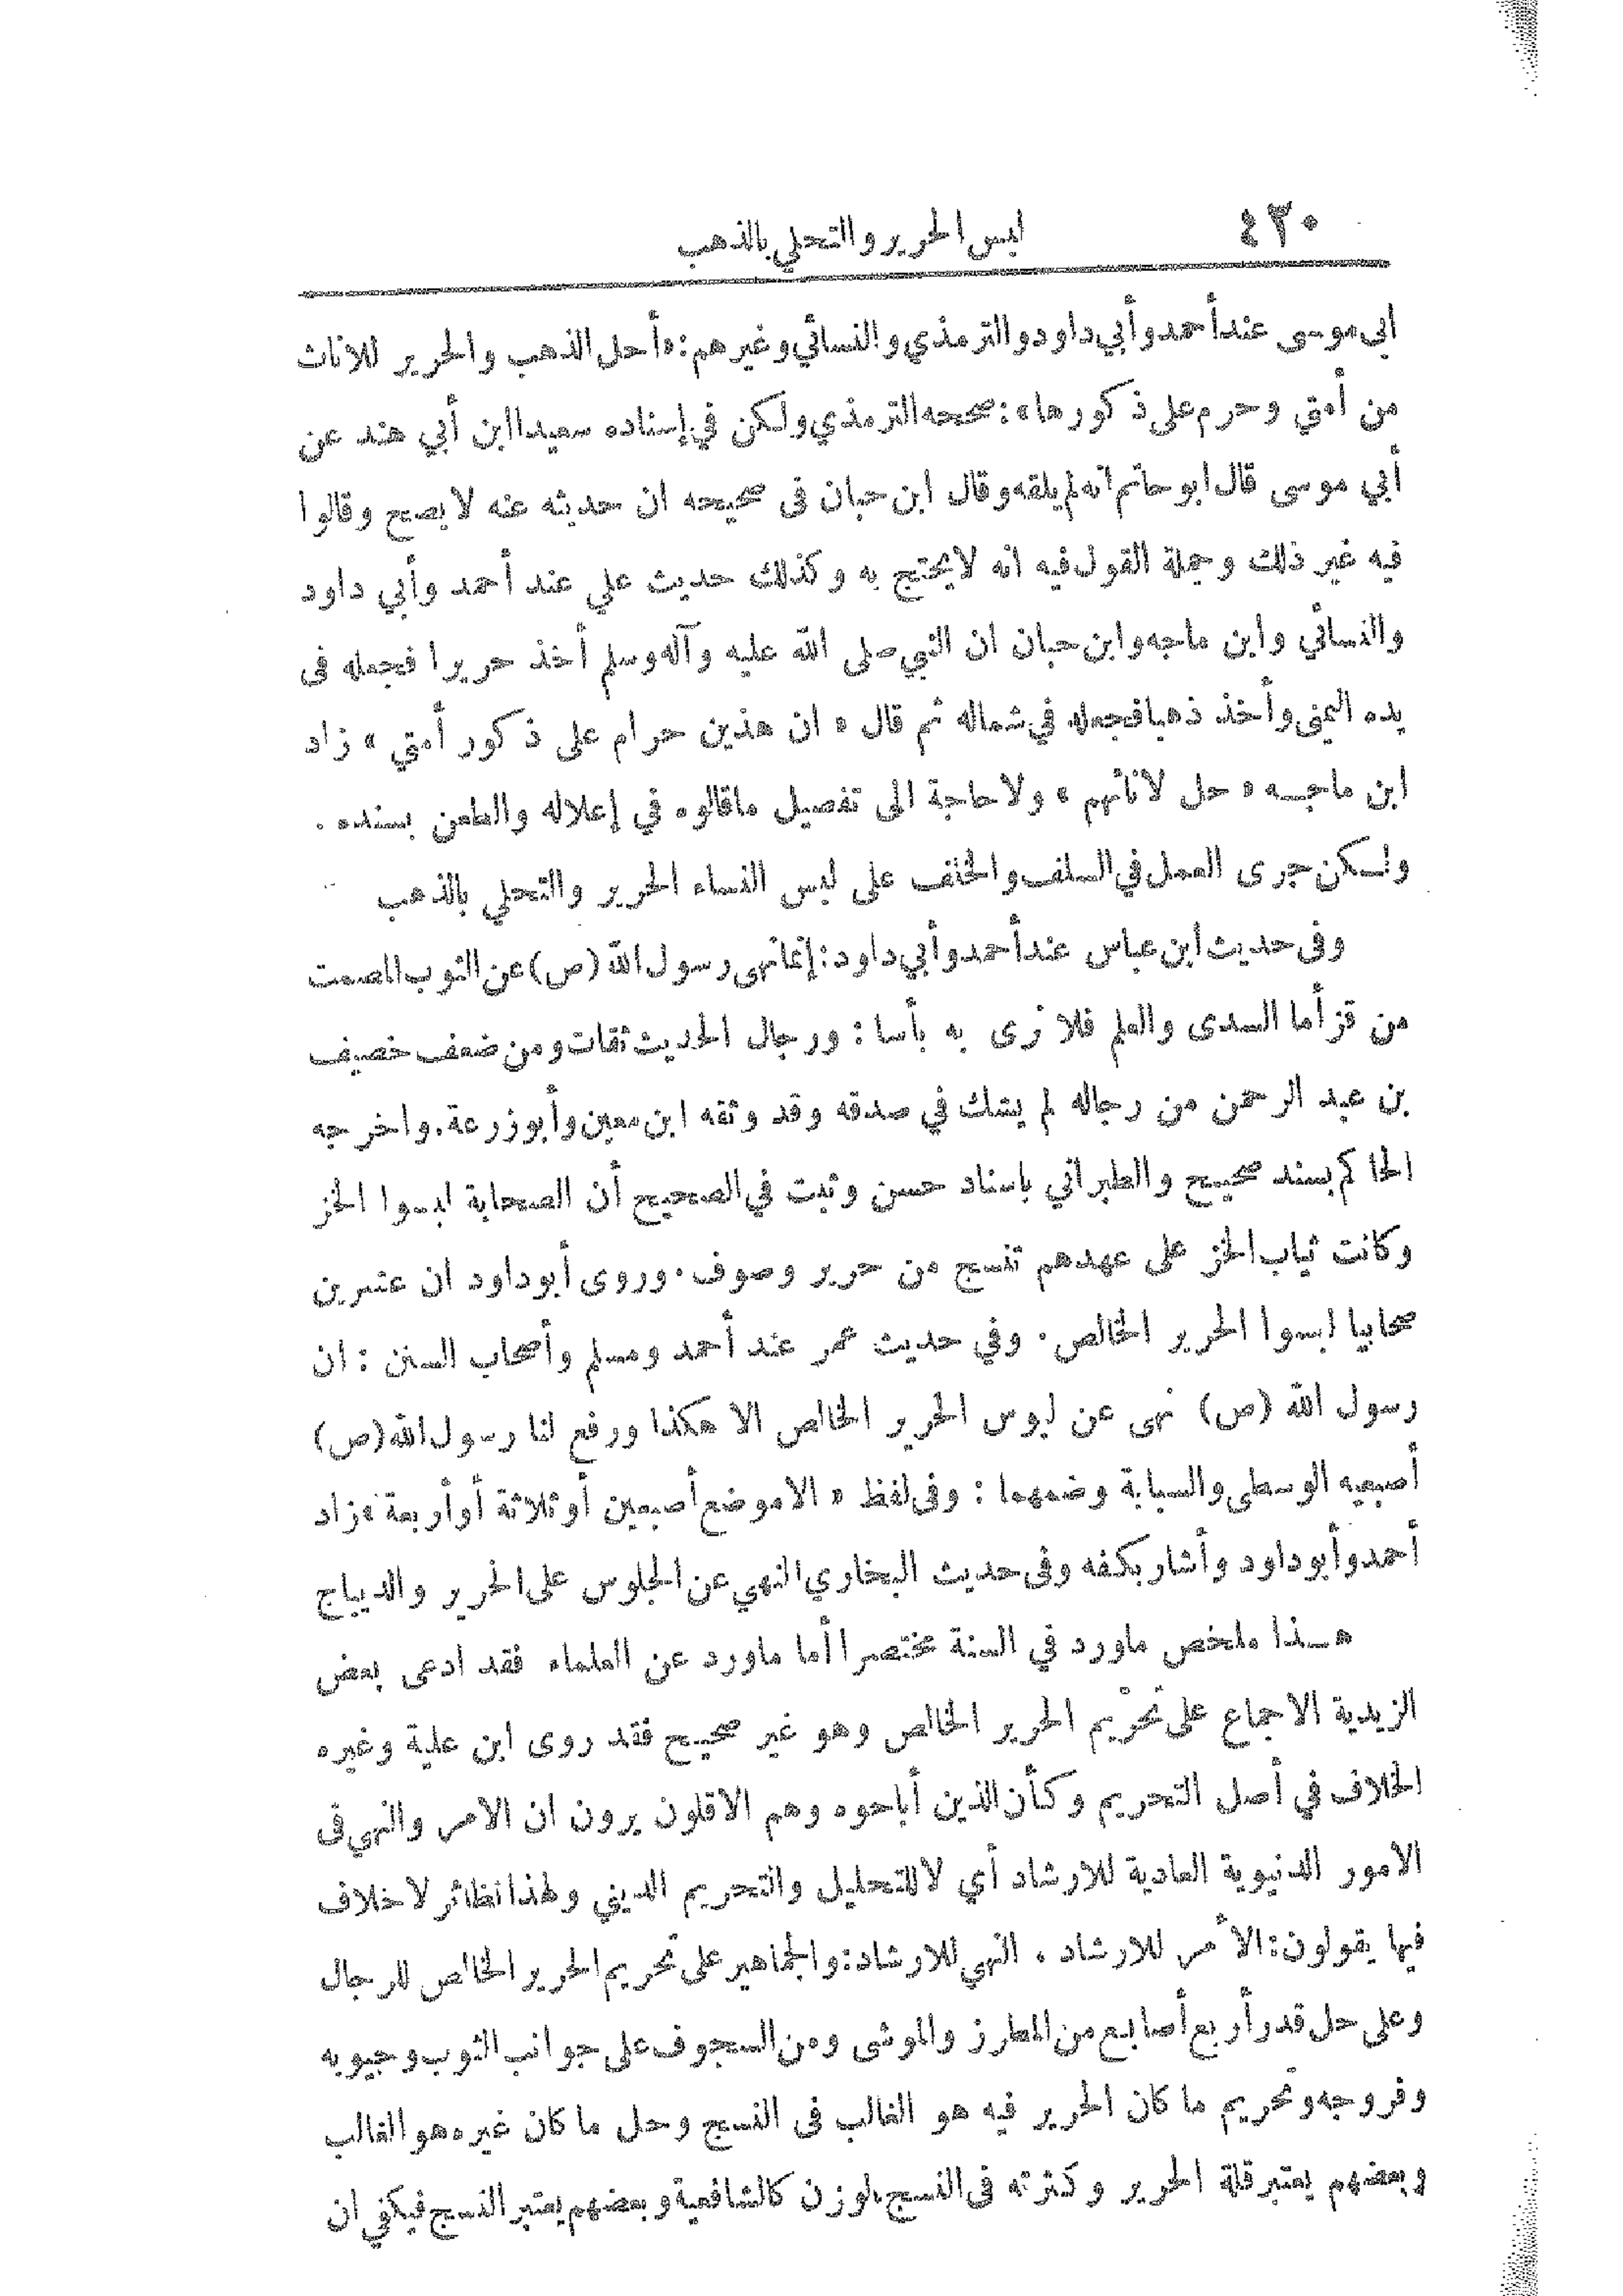 ٤٣٠
لبس الحرير والتحلي بالذهب
ابى موسى عند أحمد وأبي داود والترمذي والنسائي وغيرهم: «أحل الذهب والحرير للاناث
من أمتي وحرم على ذكورها»: صححه الترمذي ولكن في إسناده سعيدا ابن أبي هند عن
أبي موسى قال ابو حاتم انه لم يلقه وقال ابن حبان فى صحيحه ان حديثه عنه لا يصح وقالوا
فيه غير ذلك وجملة القول فيه انه لا يحتج به وكذلك حديث علي عند أحمد وأبي داود
والنسائي وابن ماجه وابن حبان ان النبي صلى الله عليه وآله وسلم أخذ حريرا فجعله فى
يده اليمنى وأخذ ذهبا فجعله في شماله ثم قال « ان هذين حرام على ذكور أمتي » زاد
ابن ماجـه « حل لاناثهم » ولا حاجة الى تفصيل ماقالوه في إعلاله والطعن بسنده .
ولـكن جرى العمل في السلف والخلف على لبس النساء الحرير والتحلي بالذهب
وفى حديث ابن عباس عند أحمد وأبي داود: إنما نهى رسول الله (ص) عن الثوب المصمت
من قز أما السدى والعلم فلا نرى به بأسا : ورجال الحديث ثقات ومن ضعف خصيف
بن عبد الرحمن من رجاله لم يشك في صدقه وقد وثقه ابن معين وأبو زرعة. واخرجه
الحاكم بسند صحيح والطبراني باسناد حسن وثبت في الصحيح أن الصحابة لبسوا الخز
وكانت ثياب الخز على عهدهم تنسج من حرير وصوف. وروى أبو داود ان عشرين
صحابيا لبسوا الحرير الخالص. وفي حديث عمر عند أحمد ومسلم وأصحاب السنن : ان
رسول الله (ص) نهى عن لبوس الحرير الخالص الا هكذا ورفع لنا رسول الله (ص)
أصبعيه الوسطى والسبابة وضمهما : وفى لفظ « الا موضع أصبعين أو ثلاثة أو أربعة » زاد
أحمد وأبو داود وأشار بكفه وفى حديث البخاري النهي عن الجلوس على الحرير والديباج
هـذا ملخص ماورد في السنة مختصرا أما ماورد عن العلماء فقد ادعى بعض
الزيدية الاجماع على تحريم الحرير الخالص وهو غير صحيح فقد روى ابن علية وغيره
الخلاف في أصل التحريم وكأن الذين أباحوه وهم الاقلون يرون ان الامر والنهي فى
الامور الدنيوية العادية للارشاد أي لا للتحليل والتحريم الديني ولهذا نظائر لا خلاف
فيها يقولون: الأمر للارشاد ، النهي للارشاد: والجماهير على تحريم الحرير الخالص للرجال
وعلى حل قدر أربع أصابع من المطرز والموشى ومن السجوف على جوانب الثوب وجيوبه
وفروجه وتحريم ما كان الحرير فيه هو الغالب فى النسج وحل ما كان غيره هو الغالب
وبعضهم يعتبر قلة الحرير وكثرته فى النسج بالوزن كالشافعية وبعضهم يعتبر النسج فيكفي ان